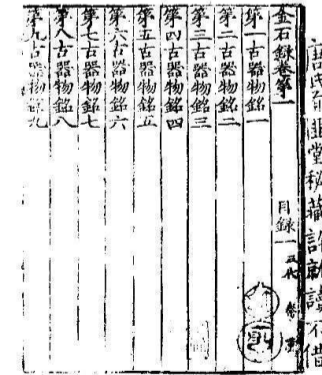 氏肖堂秘藏許就讀不借
金石錄卷第一
目録一 三代 秦
第一古器物銘一
第二古器物銘二
第三古器物銘三
第四古器物銘四
第五古器物銘五
第六古器物銘六
第七古器物銘七
第八古器物銘八
第九古器物銘九